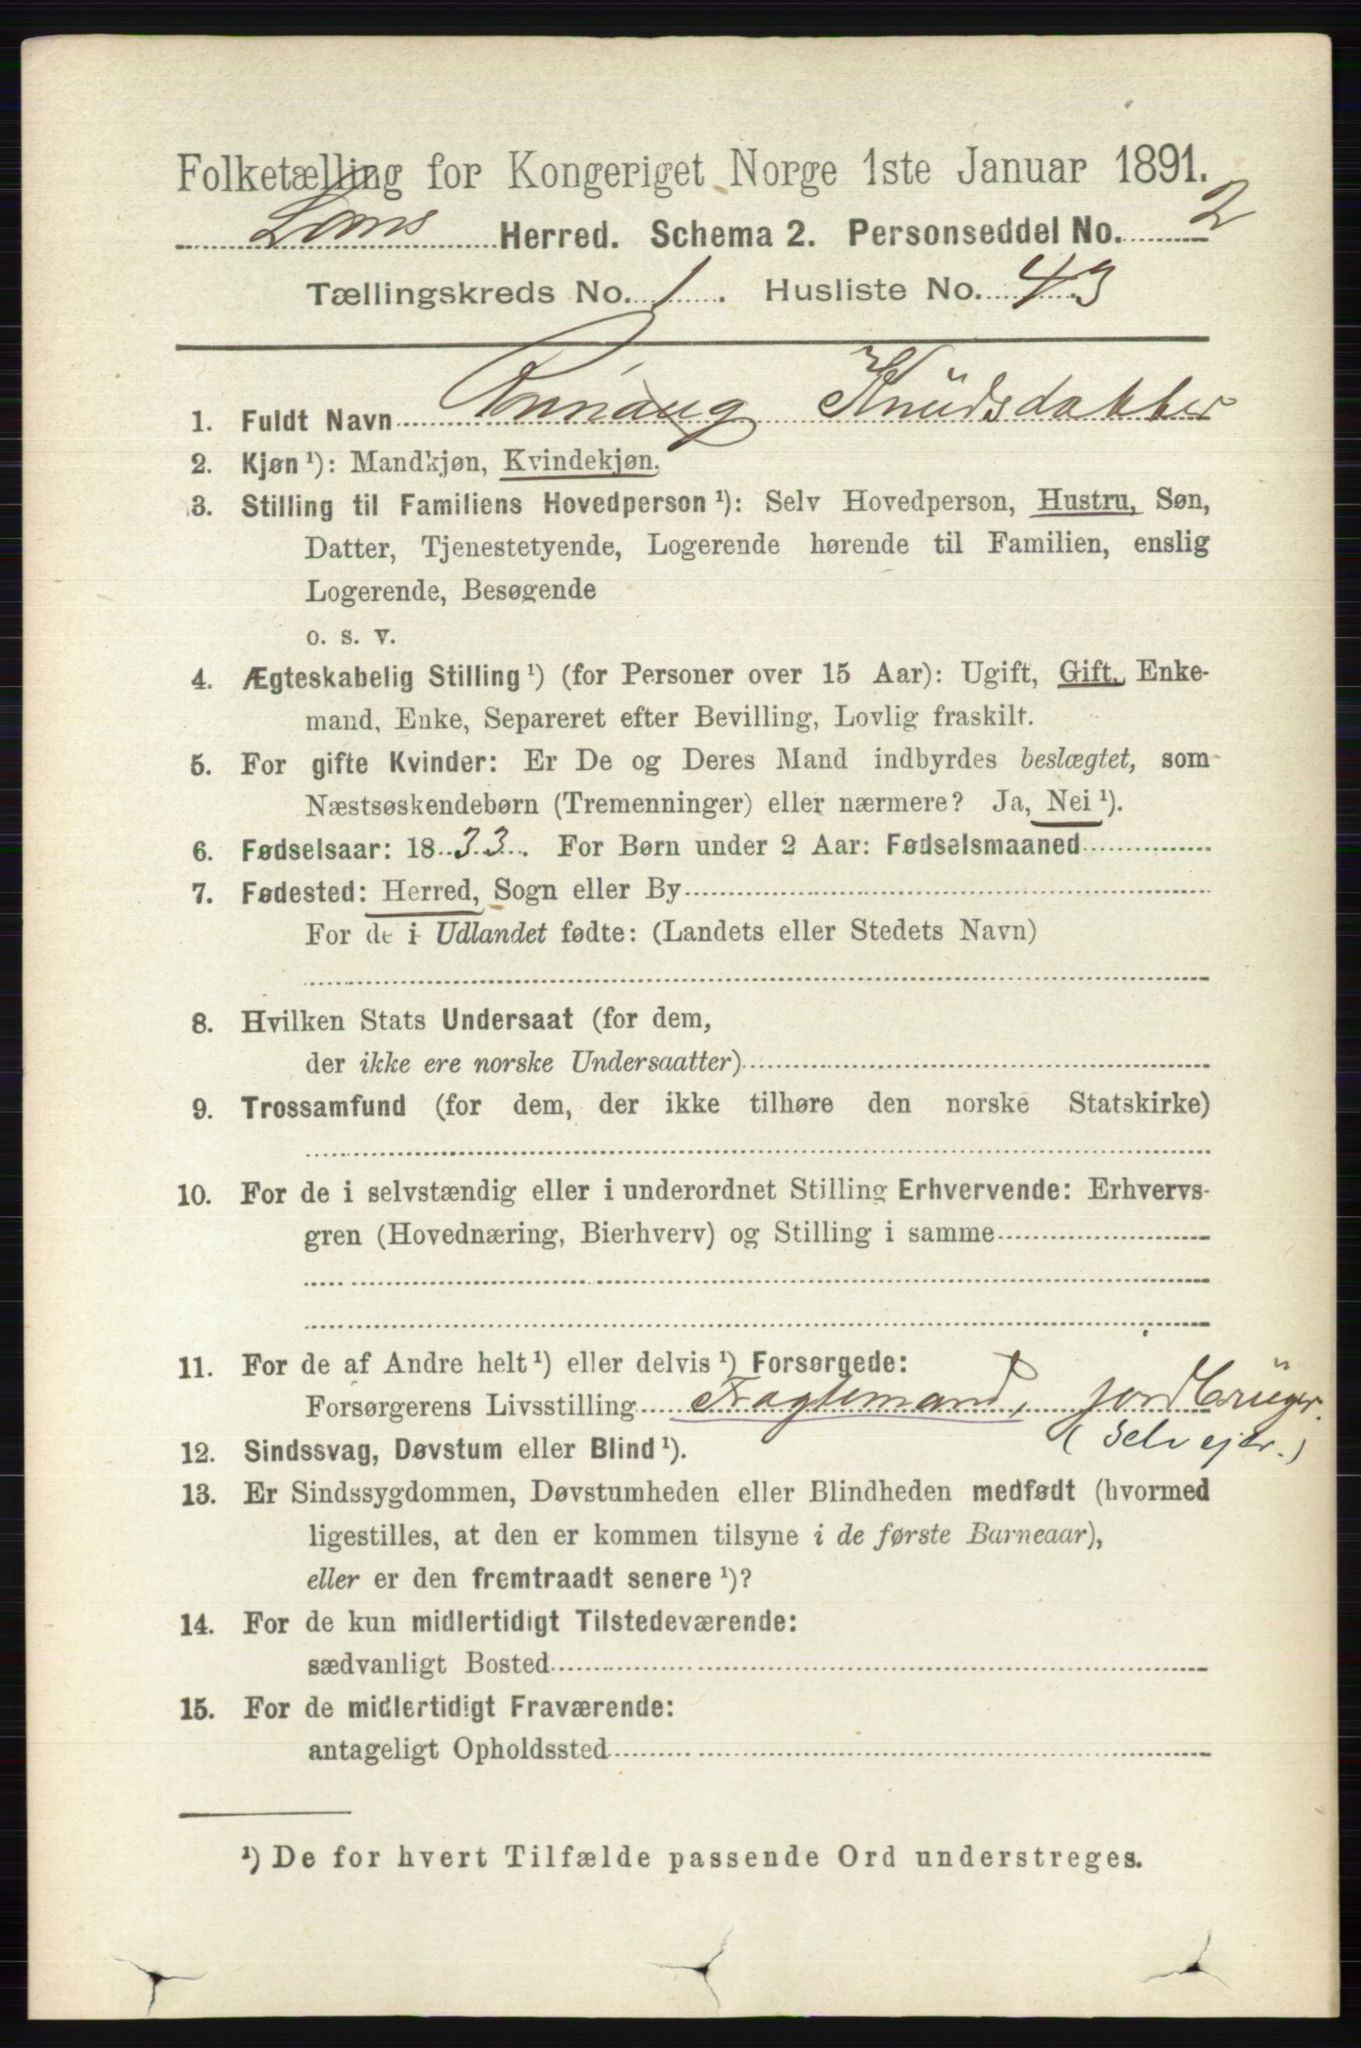 Folketælling for Kongeriget Norge 1ste Januar 1891.
Loms Herred. Schema 2. Personseddel No. 2
Tællingskreds No. 1. Husliste No. 43
1. Fuldt Navn Rønnaug Knudsdatter
2. Kjøn ¹): Mandkjøn, Kvindekjøn.
3. Stilling til Familiens Hovedperson ¹): Selv Hovedperson, Hustru, Søn,
Datter, Tjenestetyende, Logerende hørende til Familien, enslig
Logerende, Besøgende
o. s. v.
4. Ægteskabelig Stilling ¹) (for Personer over 15 Aar): Ugift, Gift, Enke-
mand, Enke, Separeret efter Bevilling, Lovlig fraskilt.
5. For gifte Kvinder: Er De og Deres Mand indbyrdes beslægtet, som
Næstsøskendebørn (Tremenninger) eller nærmere? Ja, Nei ¹).
6. Fødselsaar: 1833. For Børn under 2 Aar: Fødselsmaaned
7. Fødested: Herred, Sogn eller By
For de i Udlandet fødte: (Landets eller Stedets Navn)
8. Hvilken Stats Undersaat (for dem,
der ikke ere norske Undersaatter)
9. Trossamfund (for dem, der ikke tilhøre den norske Statskirke)
10. For de i selvstændig eller i underordnet Stilling Erhvervende: Erhvervs-
gren (Hovednæring, Bierhverv) og Stilling i samme
11. For de af Andre helt ¹) eller delvis ¹) Forsørgede:
Forsørgerens Livsstilling jordbruger.
(Selvejer.)
12. Sindssvag, Døvstum eller Blind ¹).
13. Er Sindssygdommen, Døvstumheden eller Blindheden medfødt (hvormed
ligestilles, at den er kommen tilsyne i de første Barneaar),
eller er den fremtraadt senere ¹)?
14. For de kun midlertidigt Tilstedeværende:
sædvanligt Bosted
15. For de midlertidigt Fraværende:
antageligt Opholdssted
¹) De for hvert Tilfælde passende Ord understreges.